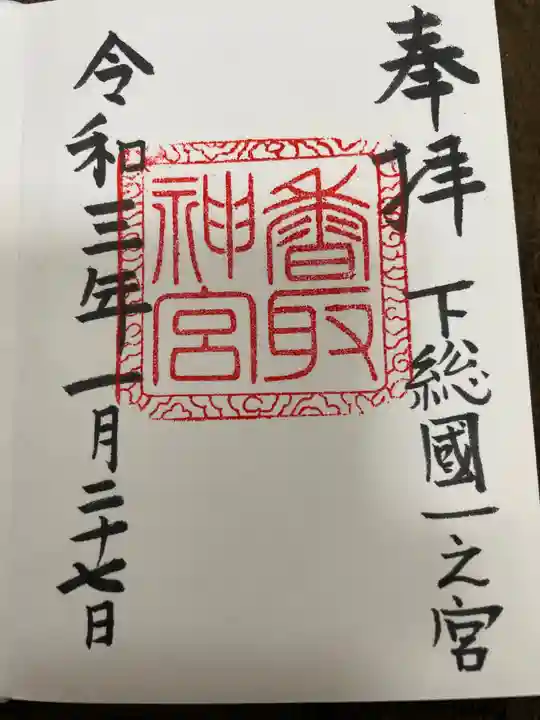 奉拝
下総國一之宮
香取
神宮
令和三年一月二十七日